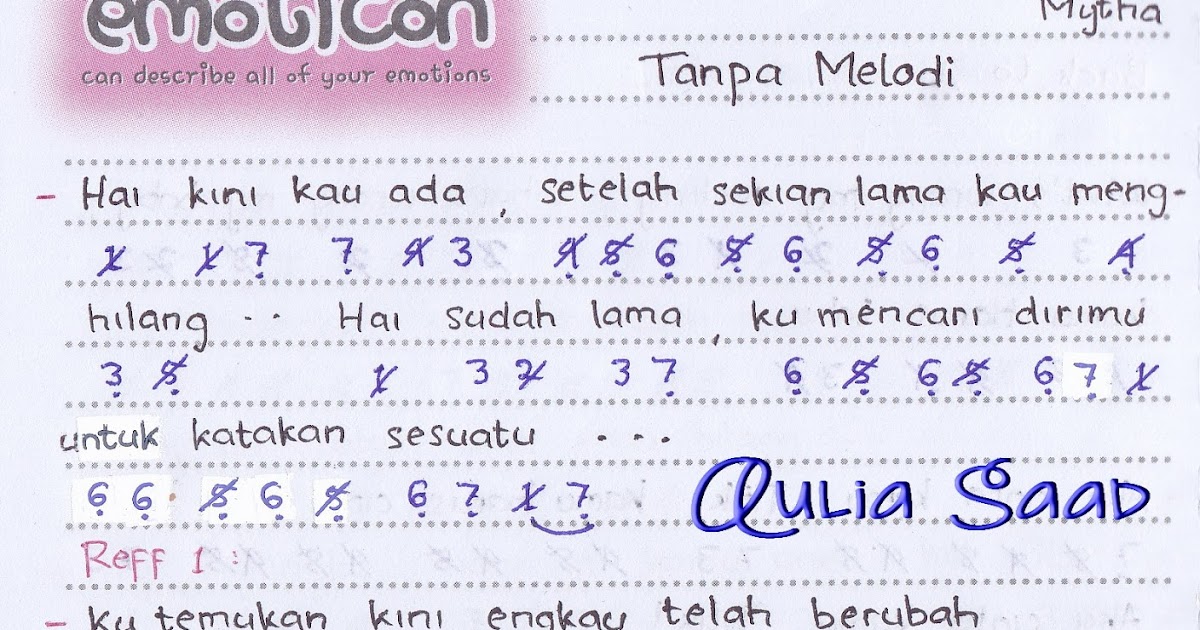 emoticon
can describe all of your emotions
Mytha
Tanpa Melodi
- Hai kini kau ada, setelah sekian lama kau meng-
1̸ 1̸ 7̣ 7̣ 4̸ 3 4̸̣ 5̸̣ 6̣ 5̸̣ 6̣ 5̸̣ 6̣ 5̸̣ 4̸̣
hilang .. Hai sudah lama, ku mencari dirimu
3̣ 5̸̣ 1̸ 3 2̸ 3 7̣ 6̣ 5̸̣ 6̣ 5̸̣ 6̣ 7̣ 1̸
untuk katakan sesuatu ...
6̣ 6̣ . 5̸̣ 6̣ 5̸̣ 6̣ 7̣ 1̸ 7̣
Qulia Saad
Reff 1 :
- ku temukan kini engkau telah berubah